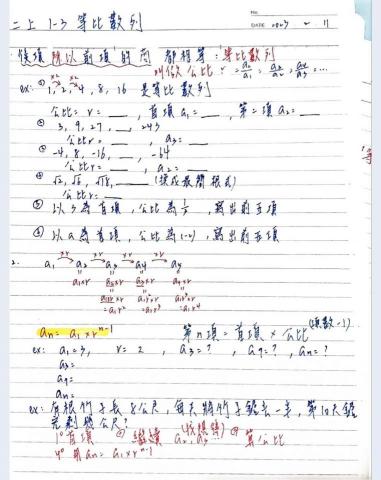 No.
DATE 2023 . . 11
二上 1-3 等比數列
後項 除以 前項 的商 都相等:等比數列
叫做 公比 = a₂/a₁ = a₃/a₂ = a₄/a₃ = ...
ex: ① 1, 2, 4, 8, 16 是等比數列
公比= r = ___ , 首項 a₁ = ___ , 第二項 a₂= ___
② 3, 9, 27, ___, 243
公比r = ___ , a₃= ___
③ -4, 8, -16, ___, -64
公比r= ___ , a₂= ___
④ √2, √6, √18, ___ (換成最簡根式)
公比r= ___
⑤ 以3為首項, 公比為 , 寫出前五項
⑥ 以a為首項, 公比為(-2), 寫出前五項
2. a₁ ×r a₂ ×r a₃ ×r a₄ ×r a₅
a₁×r a₂×r a₃×r a₄×r
a₁×r² a₁×r³ a₁×r⁴
an = a₁ × r^(n-1) 第n項 = 首項 × 公比^(項數-1)
ex: a₁=3, r=2 , a₃=? , a₉=? , an=?
a₃=
a₉=
an=
ex: 有根竹子長8公尺, 每天將竹子鋸去一半, 第10天鋸
完剩幾公尺?
1° 首項 ② 繼續 a₂, a₃ ③ 算公比
4° 用 an= a₁×r^(n-1)